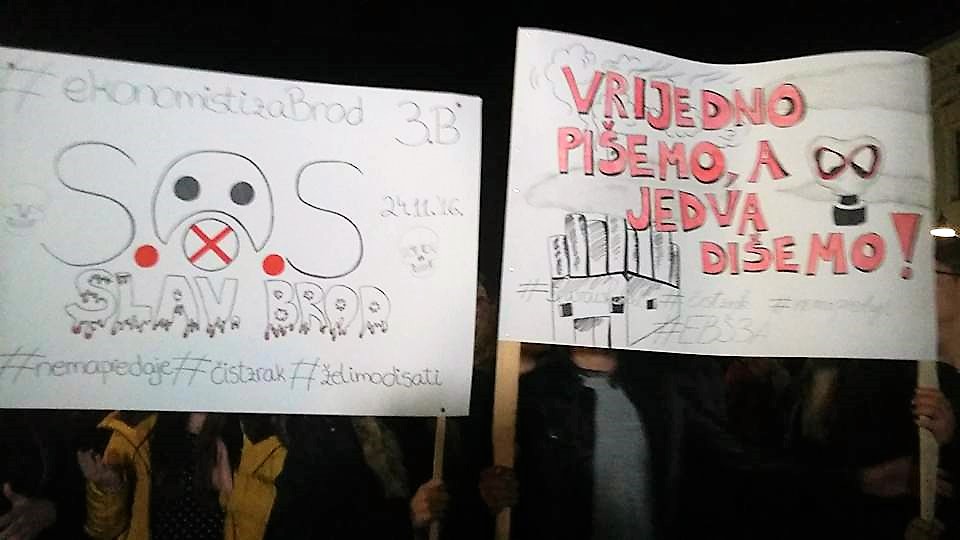 #ekonomistizaBrod
3.B
S.O.S
24.11.'16.
SLAV. BROD
#nemapredaje #čistzrak #želimodisati
VRIJEDNO
PIŠEMO, A
JEDVA
DIŠEMO!
#čistzrak #nemapredaje